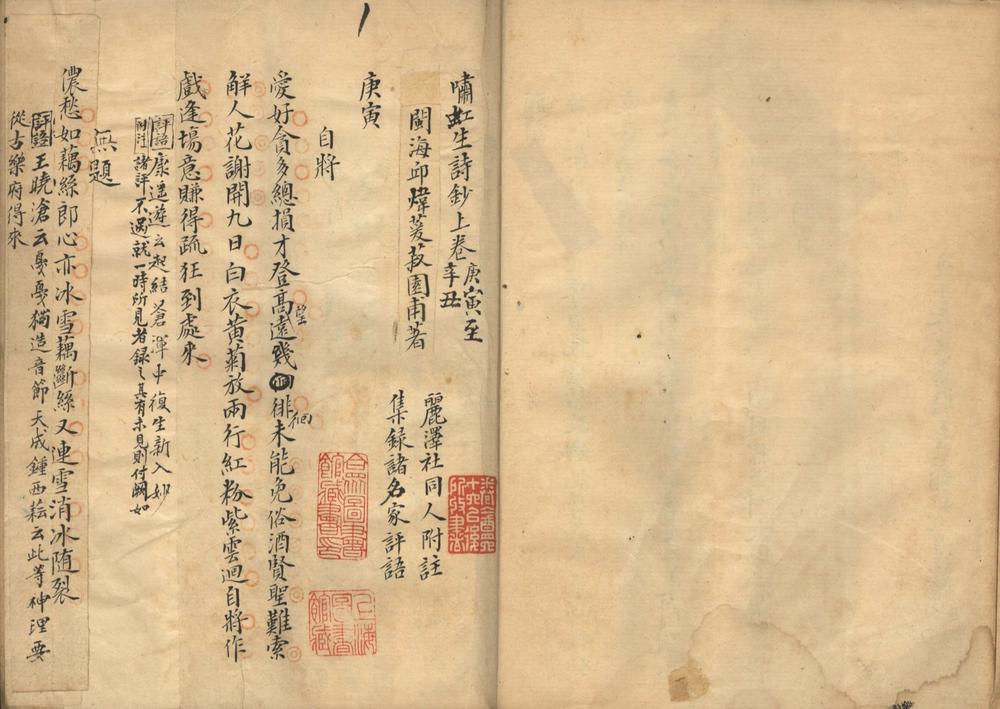 嘯虹生詩鈔上卷庚寅至辛丑
閩海邱煒萲菽園甫著
麗澤社同人附註
集録諸名家評語
庚寅
自將
愛好貪多總損才登高遠望幾徘徊未能免俗酒賢聖難索
解人花謝開九日白衣黄菊放兩行紅粉紫雲迴自將作
戲逢場意賺得疏狂到處來
評語康遥遊云起結蒼渾中復生新入妙
附注諸評不過就一時所見者録之其有未見則付闕如
無題
儂愁如藕絲郎心亦冰雪藕斷絲又連雪消冰隨裂
評語王曉滄云戛戛獨造音節天成鍾西耘云此等神理要
從古樂府得來
上海圖書館藏